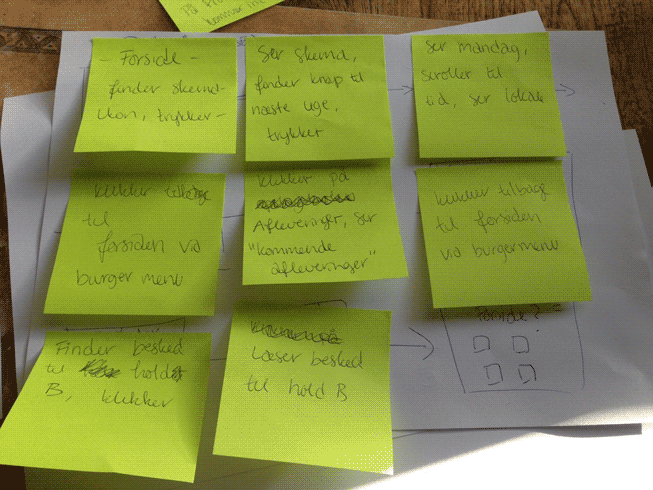 - Forside -
finder skema-
ikon, trykker -
Ser skema,
finder knap til
næste uge,
trykker
Ser mandag,
scroller til
tid, ser lokale
klikker tilbage
til
forsiden via
burger menu
klikker på
Afleveringer, ser
"kommende
afleveringer"
klikker tilbage
til forsiden
via burgermenu
Finder besked
til holdet
B, klikker
Læser besked
til hold B
Forside?